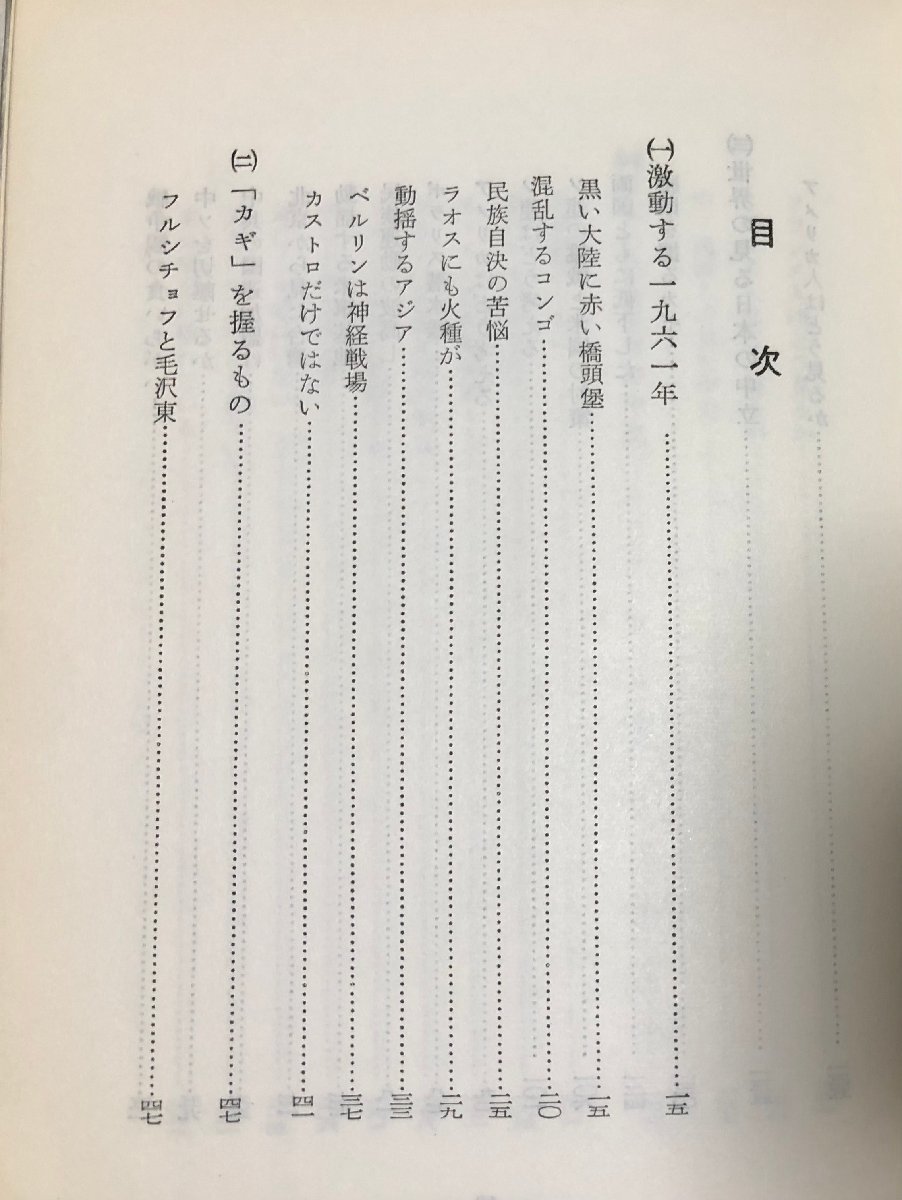 目次
㈠激動する一九六一年……一五
黒い大陸に赤い橋頭堡……一五
混乱するコンゴ……二〇
民族自決の苦悩……二五
ラオスにも火種が……二九
動揺するアジア……三三
ベルリンは神経戦場……三七
カストロだけではない……四一
㈡「カギ」を握るもの……四七
フルシチョフと毛沢東……四七